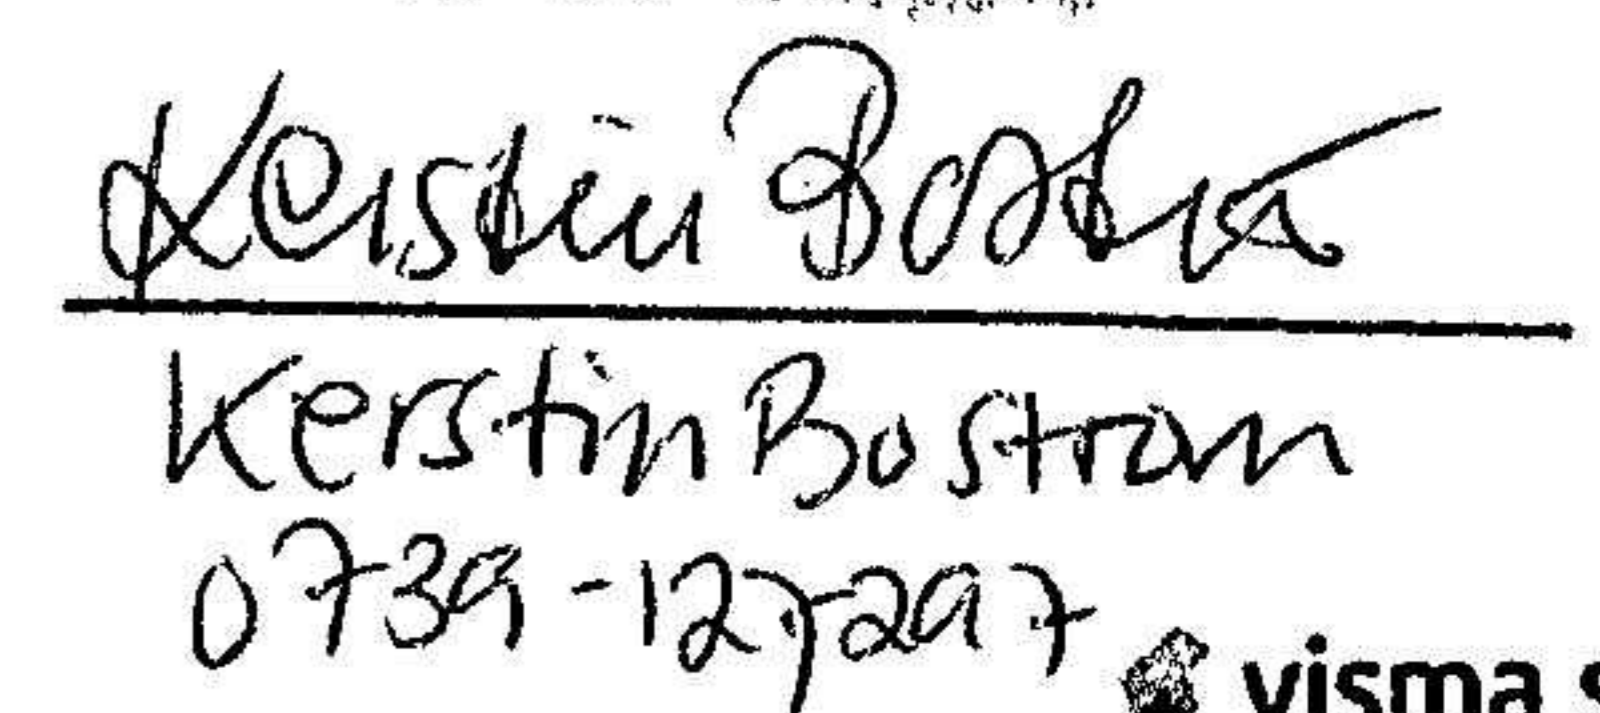 Kerstin Boström
Kerstin Bostrom
0739-127297
visma